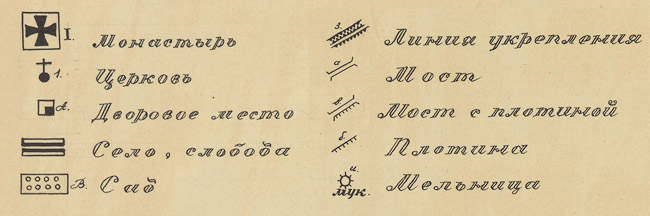 I. Монастырь
1. Церковь
А. Дворовое место
Село, слобода
В. Сад
З. Линия укрепления
а Мост
в Мост с плотиной
б Плотина
и. мук. Мельница